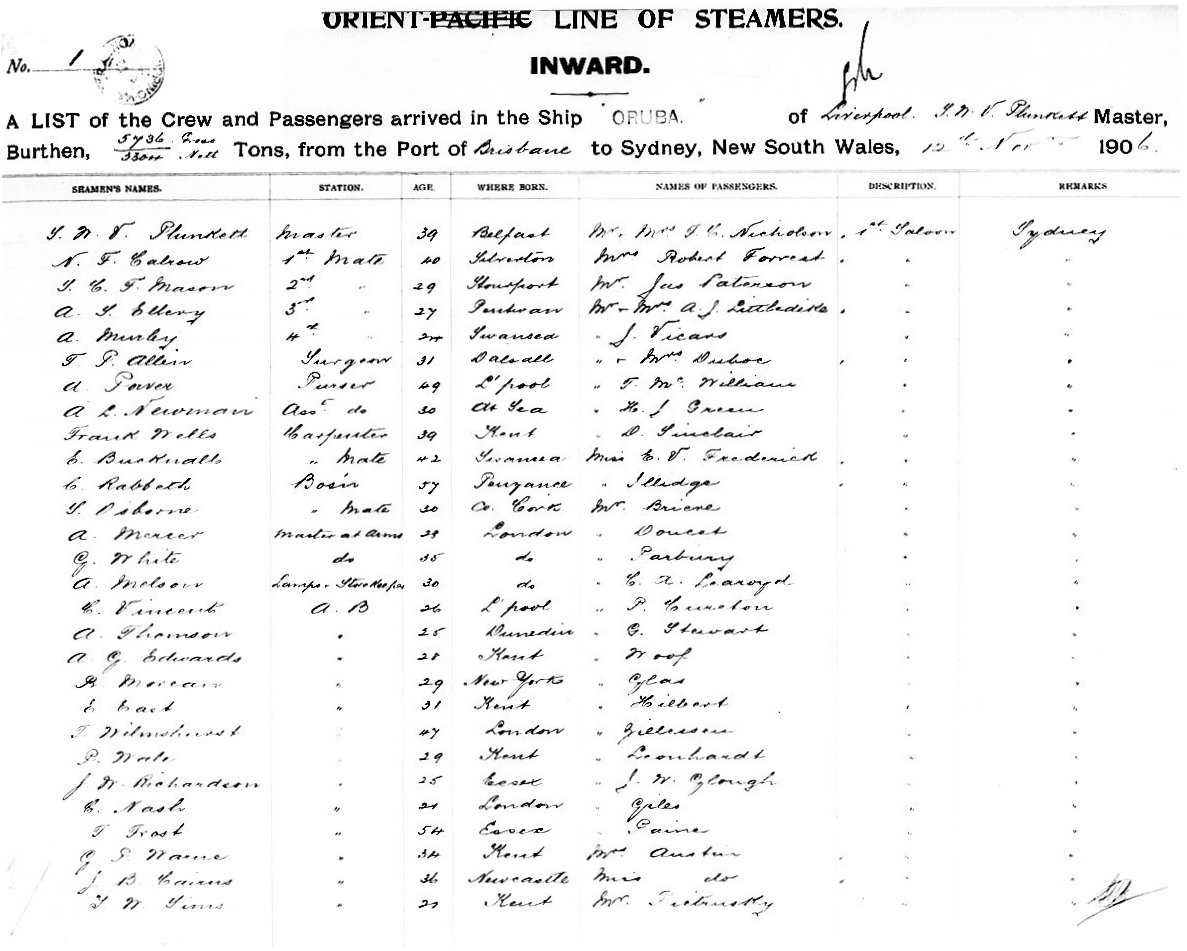 ORIENT-PACIFIC LINE OF STEAMERS.
No. 1
INWARD.
A LIST of the Crew and Passengers arrived in the Ship "ORUBA." of Liverpool. Plunkett Master,
Burthen, 5736 Tons, from the Port of Brisbane to Sydney, New South Wales, 12th Nov 1906.
SEAMEN'S NAMES. STATION. AGE. WHERE BORN. NAMES OF PASSENGERS. DESCRIPTION. REMARKS
Plunkett Master 39 Belfast Mr. Mrs T. C. Nicholson 1st Saloon Sydney
N. F. Calrow 1st Mate 40 Silverton Mrs Robert Forrest " "
Mason 2nd " 29 Stourport Mr. Jas Paterson " "
Ellery 3rd " 27 Mr + Mrs A. J. " "
A. Murley 4th " 24 Swansea " J. Vicars " "
Allin Surgeon 31 " + Mrs Duboc " "
A. Power Purser 49 L'pool " T. Mc William " "
A. L. Newman Asst do 30 At Sea " H. J. Green " "
Frank Wells Carpenter 39 Kent " D. Sinclair " "
E. Bucknall " Mate 42 Swansea Miss E. V. Frederick " "
C. Rabbeth Bos'n 57 Penzance " Illidge " "
Osborne " Mate 30 Co. Cork Mr. " "
A. Mercer Master at Arms 29 London " Doucet " "
G. White do 35 do " Parbury " "
A. Melson Lamps + Storekeeper 30 do " Learoyd " "
C. Vincent A. B 26 L'pool " P. Cureton " "
A. Thomson " 25 Dunedin " G. Stewart " "
A. G. Edwards " 28 Kent " Woof " "
Morean " 29 New York " " "
E East " 31 Kent " Hilbert " "
T. Wilmshurst " 47 London " " "
P. Wale " 29 Kent " Leonhardt " "
J. W. Richardson " 25 Essex " J. W. " "
C. Nash " 21 London " Giles " "
T Frost " 54 Essex " Paine " "
G P. Warne " 34 Kent Mrs Austin " "
J B. Cairns " 36 Newcastle Miss do " "
W. Sims " 21 Kent Mr. Pietrusky " "